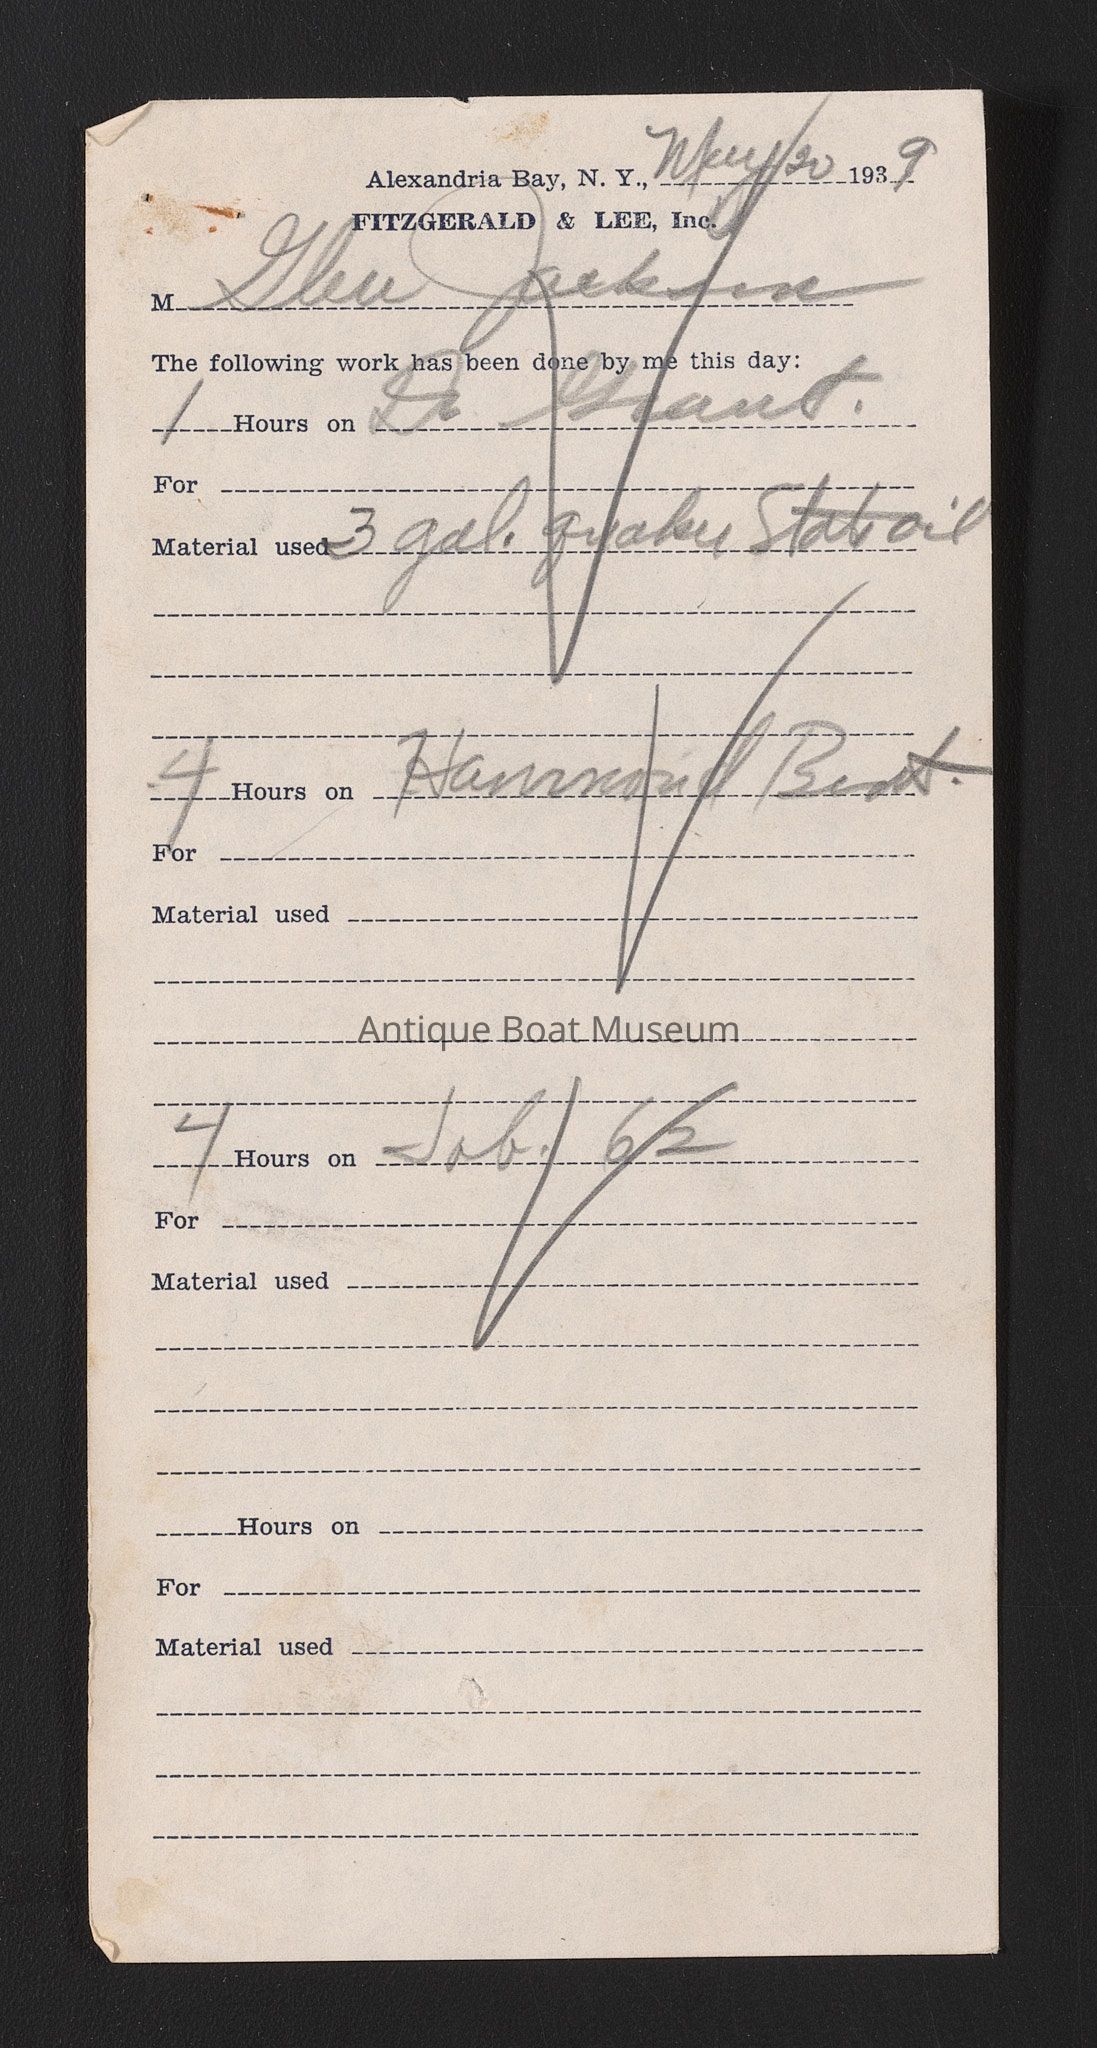 Alexandria Bay, N. Y., May 20 1939
FITZGERALD & LEE, Inc.
M Glen Jackson
The following work has been done by me this day:
1 Hours on Dr Grant.
For
Material used 3 gal. quaker State oil
4 Hours on Hammond Boat.
For
Material used
Antique Boat Museum
4 Hours on Job. 62
For
Material used
Hours on
For
Material used